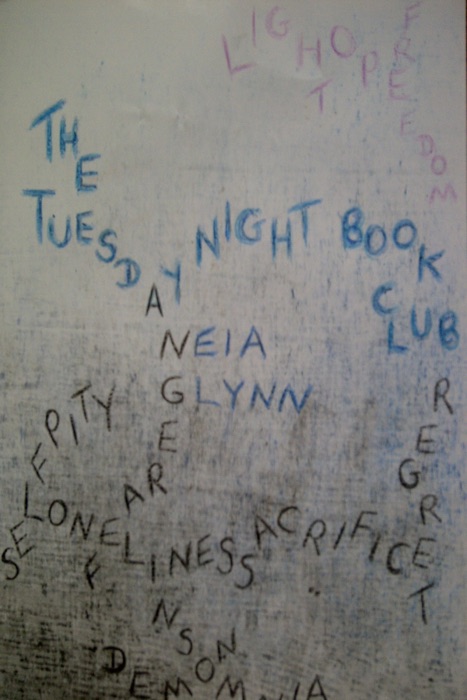 LIGHT
HOPE
FREEDOM
THE
TUESDAY NIGHT BOOK
CLUB
ANGER
NEIA
GLYNN
SELF PITY
REGRET
FEAR
LONELINESS
SACRIFICE
INSOMNIA
DEMON